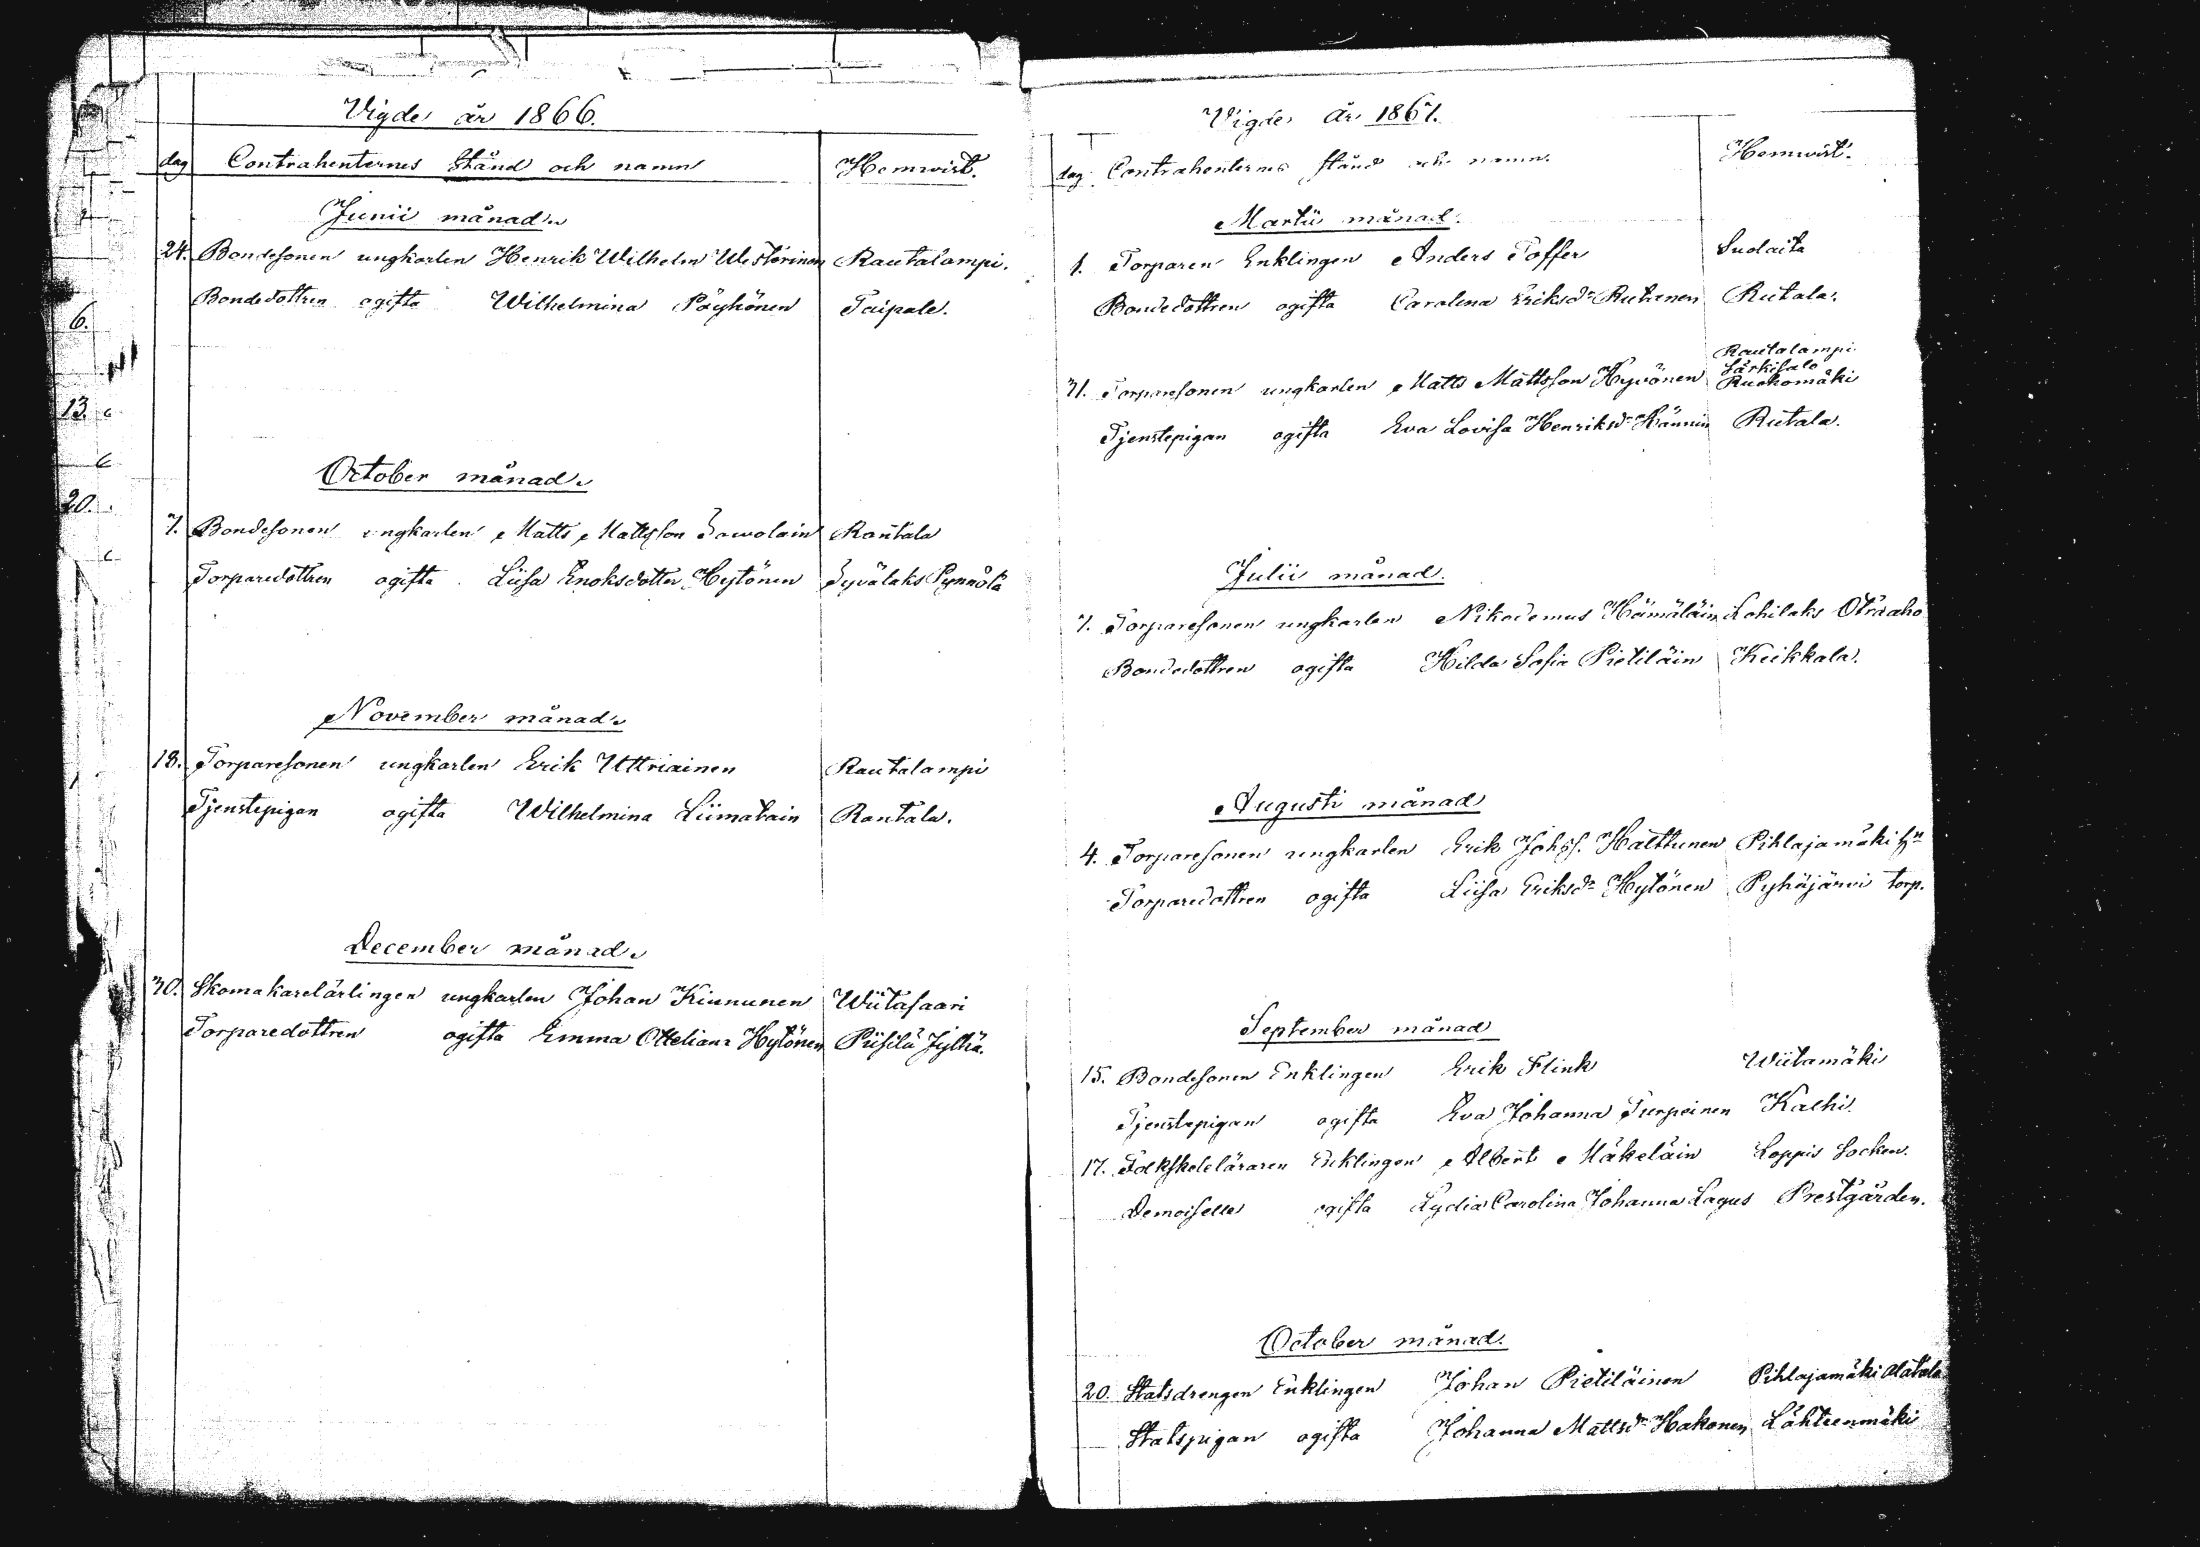 Vigde år 1866.
dag Contrahenternes Stånd och namn Hemwist.
Junii månad.
24. Bondesonen ungkarlen Henrik Wilhelm Westerinen Rautalampi.
Bondedottren ogifta Wilhelmina Pöyhönen Taipale.
6.
13.
20.
October månad.
7. Bondesonen ungkarlen Matts Mattsson Sawolain Rantala
Torparedottren ogifta Liisa Enoksdotter Hytönen Jyvälaks Pynnölä
November månad.
18. Torparesonen ungkarlen Erik Uttriainen Rautalampi
Tjenstepigan ogifta Wilhelmina Liimatain Rantala.
December månad.
30. Skomakarelärlingen ungkarlen Johan Kinnunen Wiitasaari
Torparedottren ogifta Emma Otteliana Hytönen Piisilä Jylhä.
Vigde År 1867.
dag Contrahenternes stånd och namn. Hemwist.
Martii månad.
1. Torparen Enklingen Anders Toffer Suolaita
Bondedottren ogifta Carolina Eriksdr Ruhanen Rutala.
Rautalampi
Särkisalo
31. Torparesonen ungkarlen Matts Mattsson Hyvönen Ruokomäki
Tjenstepigan ogifta Eva Lovisa Henriksdr Hännin Rutala.
Julii månad.
7. Torparesonen ungkarlen Nikodemus Hämäläin Lohilaks Otraaho
Bondedottren ogifta Hilda Sofia Pietiläin Keikkala.
Augusti månad
4. Torparesonen ungkarlen Erik Johss. Halttunen Pihlajamäki
Torparedottren ogifta Liisa Eriksdr Hytönen Pyhäjärvi torp.
September månad
15. Bondesonen Enklingen Erik Flink Wiitamäki
Tjenstepigan ogifta Eva Johanna Turpeinen Kalhi.
17. Folkskoleläraren Enklingen Albert Mäkeläin Loppis Socken.
Demoiselle ogifta Lydia Carolina Johanna Lagus Prestgården.
October månad.
20. Statsdrengen Enklingen Johan Pietiläinen Pihlajamäki Alatalo
Statspigan ogifta Johanna Mattsdr Hakonen Lähteenmäki